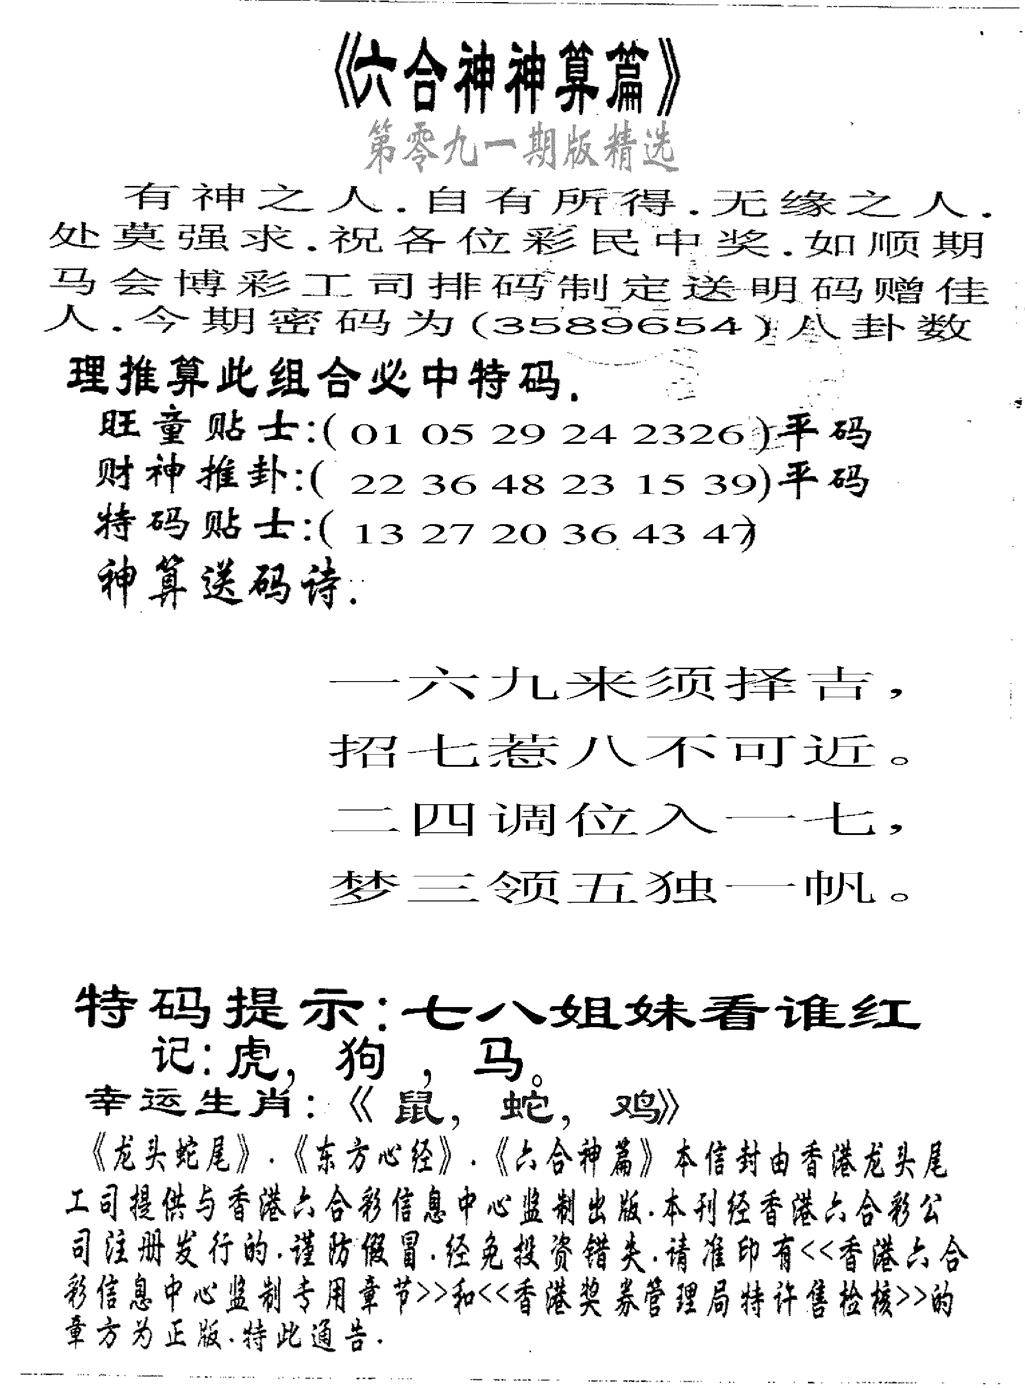 《六合神神算篇》
第零九一期版精选
有神之人.自有所得.无缘之人.
处莫强求.祝各位彩民中奖.如顺期
马会博彩工司排码制定送明码赠佳
人.今期密码为(3589654)八卦数
理推算此组合必中特码.
旺童贴士:( 01 05 29 24 2326 )平码
财神推卦:( 22 36 48 23 15 39)平码
特码贴士:( 13 27 20 36 43 47)
神算送码诗.
一六九来须择吉,
招七惹八不可近。
二四调位入一七,
梦三领五独一帆。
特码提示:七八姐妹看谁红
记:虎,狗,马。
幸运生肖:《鼠,蛇,鸡》
《龙头蛇尾》.《东方心经》.《六合神篇》本信封由香港龙头尾
工司提供与香港六合彩信息中心监制出版.本刊经香港六合彩公
司注册发行的.谨防假冒.经免投资错失.请准印有<<香港六合
彩信息中心监制专用章节>>和<<香港奖券管理局特许售检核>>的
章方为正版.特此通告.